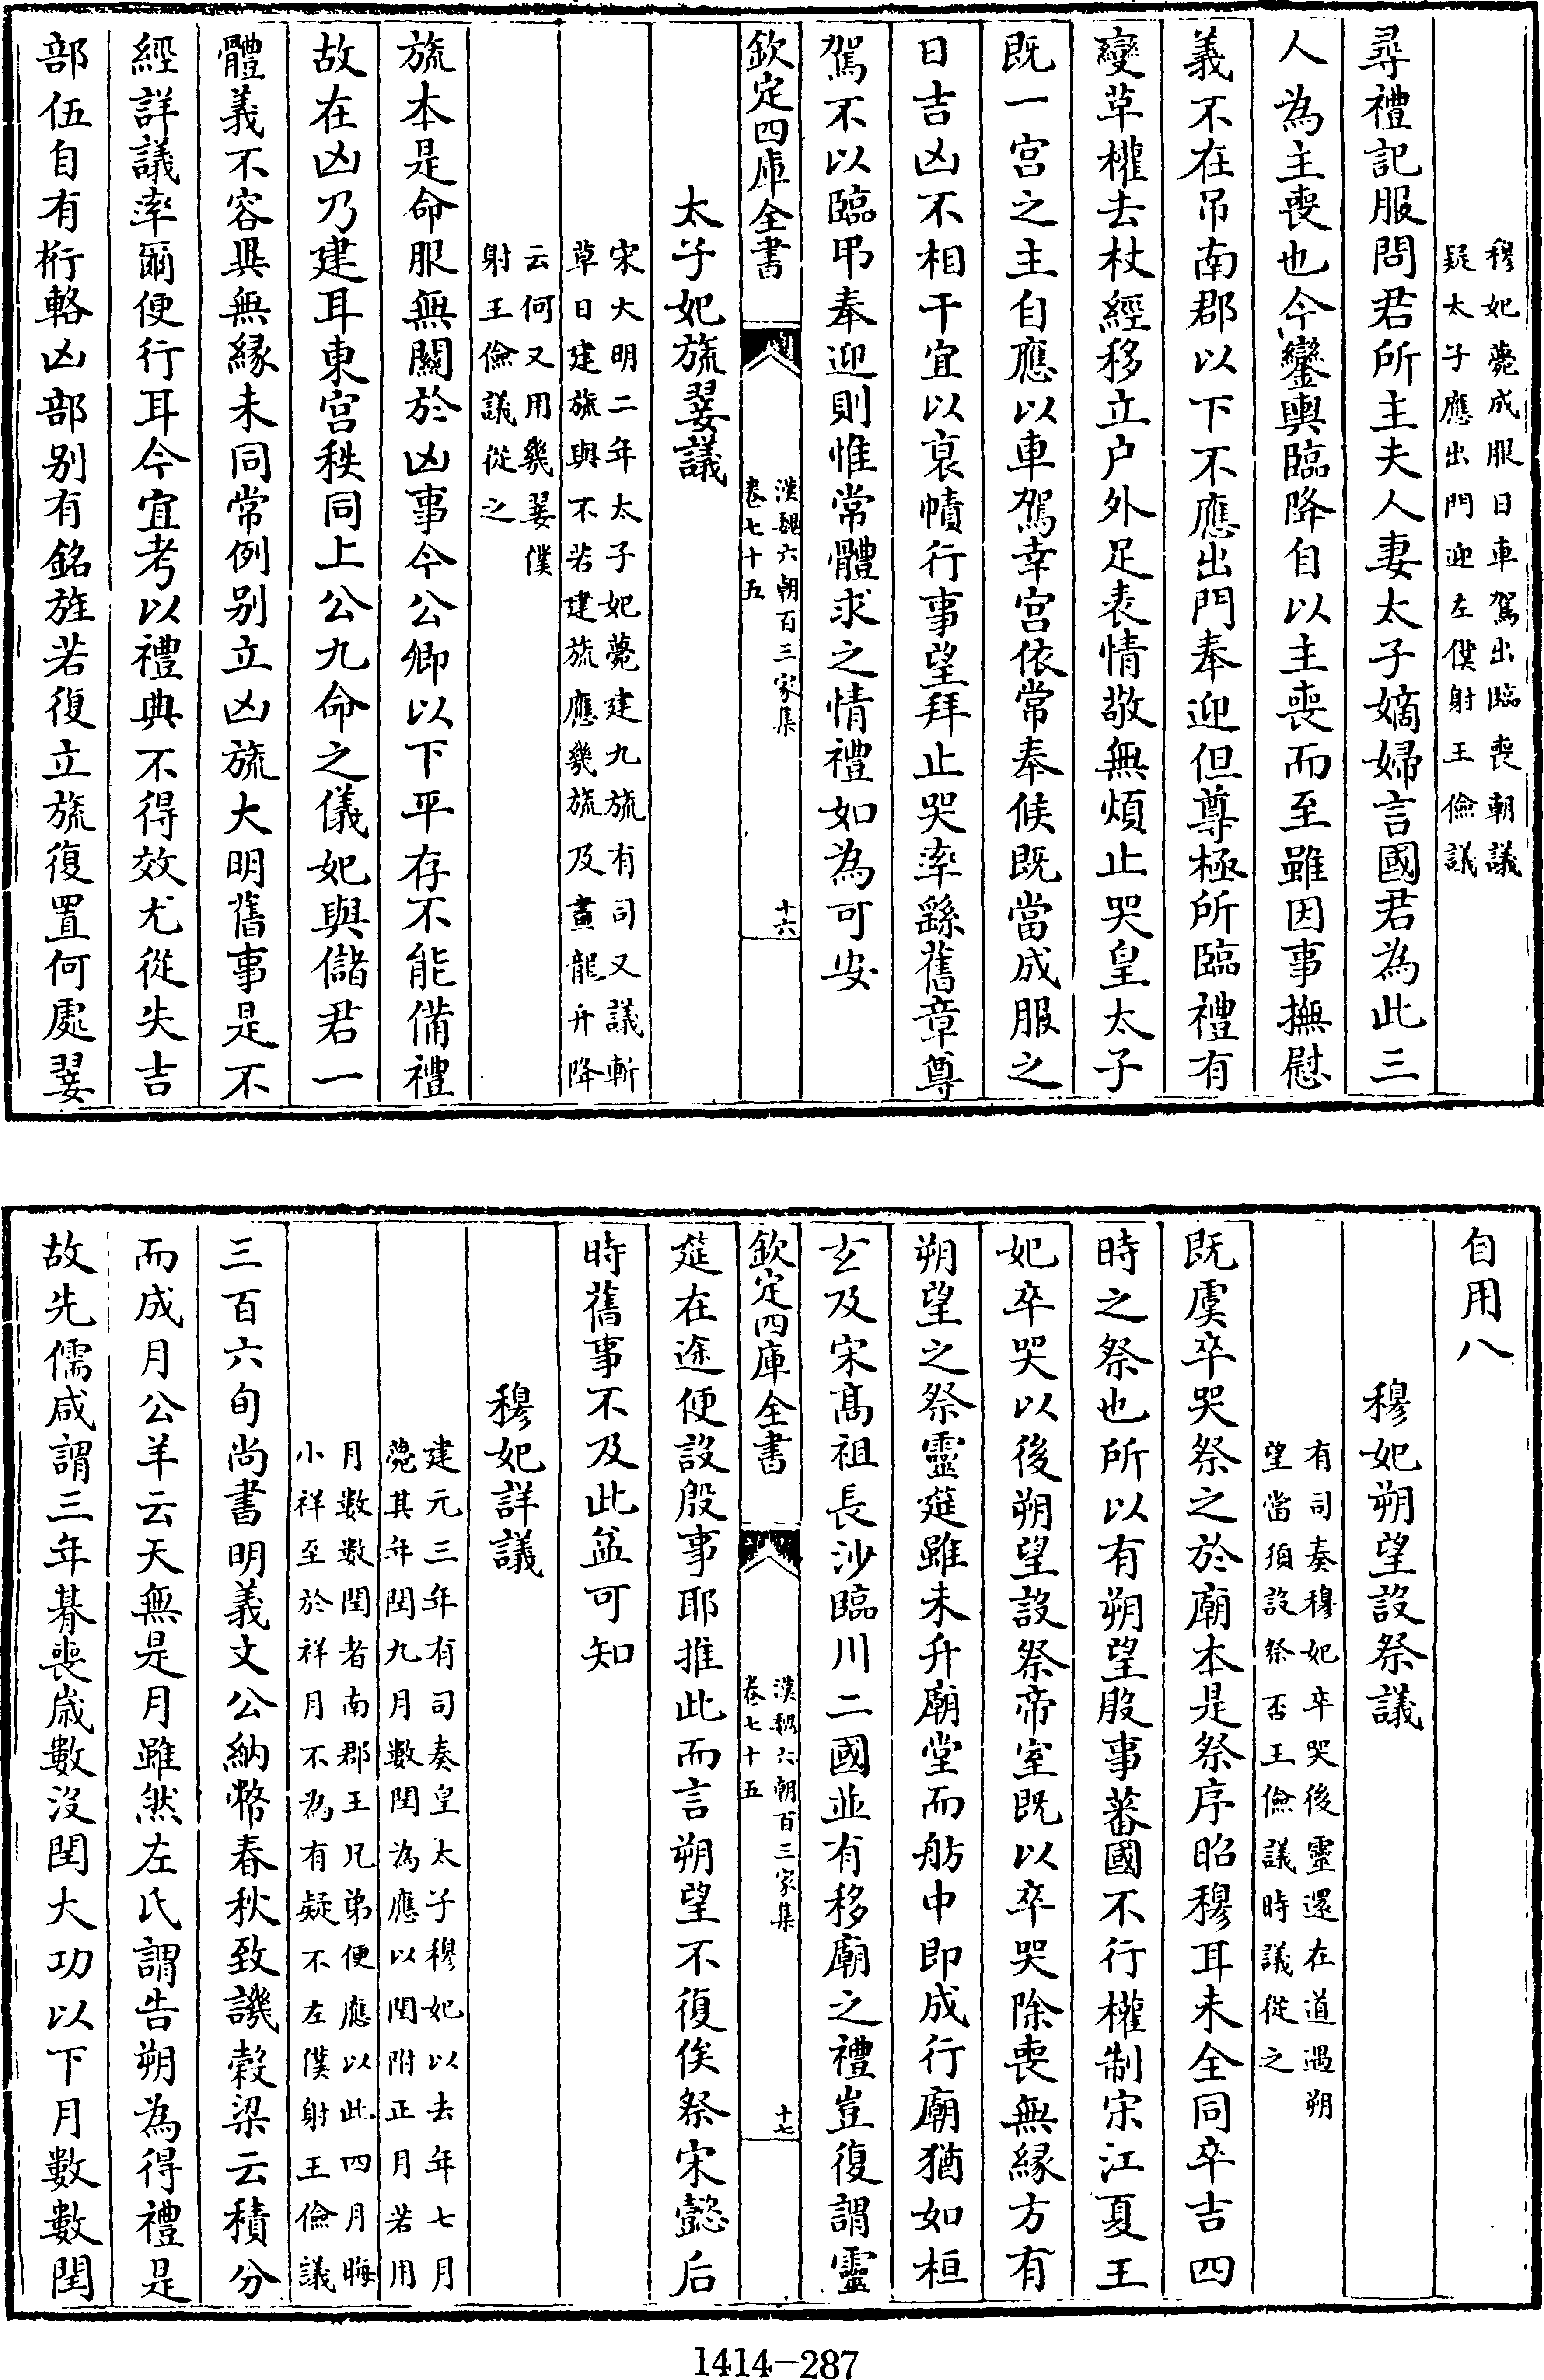 穆妃薨成服日車駕出臨喪朝議
疑太子應出門迎左僕射王儉議
尋禮記服問君所主夫人妻太子嫡婦言國君為此三
人為主喪也今鑾輿臨降自以主喪而至雖因事撫慰
義不在吊南郡以下不應出門奉迎但尊極所臨禮有
變革權去杖絰移立户外足表情敬無煩止哭皇太子
既一宫之主自應以車駕幸宫依常奉候既當成服之
日吉凶不相干宜以衰幘行事望拜止哭率繇舊章尊
駕不以臨弔奉迎則惟常體求之情禮如為可安
欽定四庫全書
漢魏六朝百三家集
卷七十五
十六
太子妃旒翣議
宋大明二年太子妃薨建九旒有司又議斬
草日建旒與不若建旒應幾旒及畫龍升降
云何又用幾翣僕
射王儉議從之
旒本是命服無關於凶事今公卿以下平存不能備禮
故在凶乃建耳東宫秩同上公九命之儀妃與儲君一
體義不容異無緣未同常例别立凶旒大明舊事是不
經詳議率爾便行耳今宜考以禮典不得效尤從失吉
部伍自有桁輅凶部别有銘旌若復立旒復置何處翣
自用八
穆妃朔望設祭議
有司奏穆妃卒哭後靈還在道遇朔
望當須設祭否王儉議時議從之
既虞卒哭祭之於廟本是祭序昭穆耳未全同卒吉四
時之祭也所以有朔望殷事蕃國不行權制宋江夏王
妃卒哭以後朔望設祭帝室既以卒哭除喪無緣方有
朔望之祭靈筵雖未升廟堂而舫中即成行廟猶如桓
玄及宋髙祖長沙臨川二國並有移廟之禮豈復謂靈
欽定四庫全書
漢魏六朝百三家集
卷七十五
十七
筵在途便設殷事耶推此而言朔望不復俟祭宋懿后
時舊事不及此益可知
穆妃詳議
建元三年有司奏皇太子穆妃以去年七月
薨其年閏九月數閏為應以閏附正月若用
月數數閏者南郡王兄弟便應以此四月晦
小祥至於祥月不為有疑不左僕射王儉議
三百六旬尚書明義文公納幣春秋致譏穀梁云積分
而成月公羊云天無是月雖然左氏謂告朔為得禮是
故先儒咸謂三年朞喪歲數沒閏大功以下月數數閏
1414-287